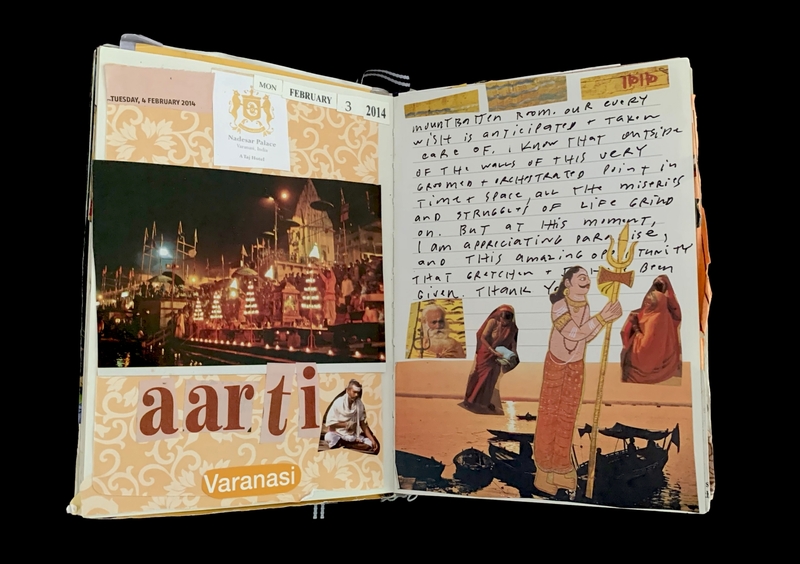 TUESDAY, 4 FEBRUARY 2014
MON FEBRUARY 3 2014
Nadesar Palace
Varanasi, India
A Taj Hotel
aarti
Varanasi
MOUNTBATTEN ROOM. OUR EVERY
WISH IS ANTICIPATED + TAKEN
CARE OF. I KNOW THAT OUTSIDE
OF THE WALLS OF THIS VERY
GROOMED + ORCHESTRATED POINT IN
TIME + SPACE, ALL THE MISERIES
AND STRUGGLES OF LIFE GRIND
ON. BUT AT THIS MOMENT,
I AM APPRECIATING PARADISE,
AND THIS AMAZING OPPORTUNITY
THAT GRETCHEN + BEEN
GIVEN. THANK